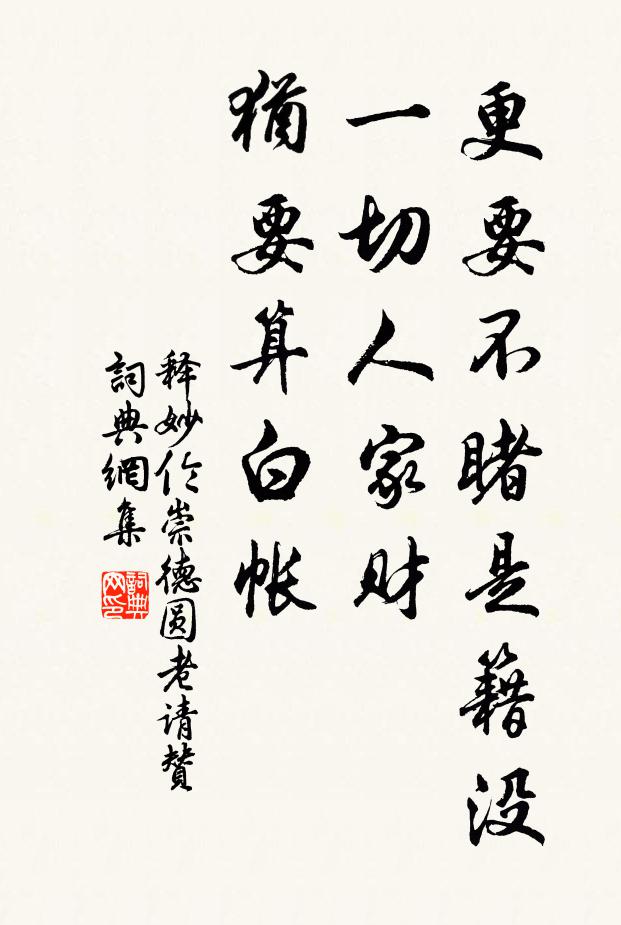 更要不睹是籍没
一切人家财
犹要算白帐
释妙伦崇德圆老请赞
詞典網集
詞典
网印